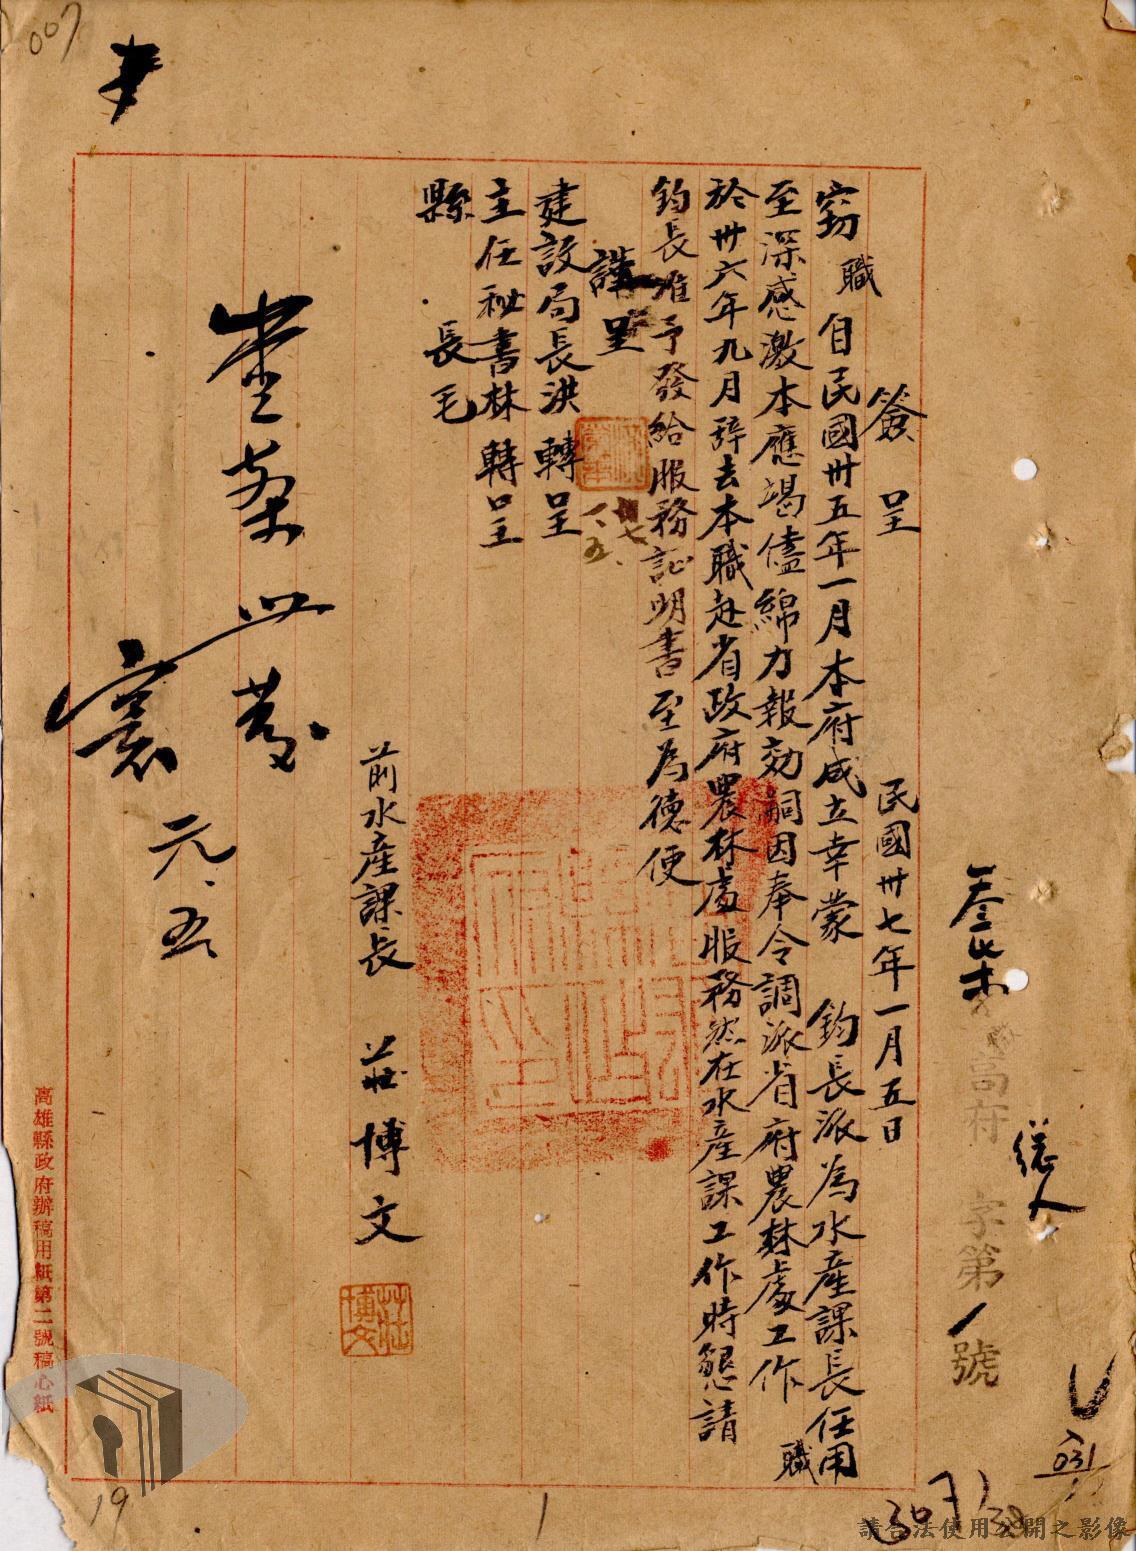 007
簽呈
民國卅七年一月五日
竊職自民國卅五年一月本府成立幸蒙 鈞長派為水產課長任用
至深感激本應竭儘綿力報効嗣因奉令調派省府農林處工作職
於卅六年九月辞去本職赴省政府農林處服務然在水產課工作時懇請
鈞長准予發給服務証明書至為德便
謹呈
建設局長洪轉呈
主任秘書林轉呈
縣長毛
前水產課長 莊博文
莊博文
卅七
一、五、
元、五
高府 字第1號
總人
031
307
19
1
高雄縣政府辦稿用紙第二號稿心紙
請合法使用公開之影像